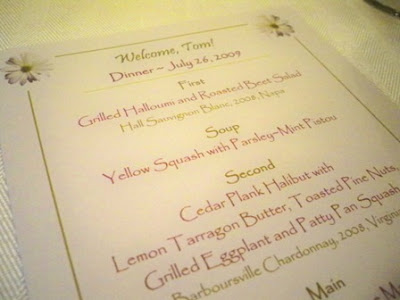 Welcome, Tom!
Dinner ~ July 26, 2009
First
Grilled Halloumi and Roasted Beet Salad
Hall Sauvignon Blanc, 2008, Napa
Soup
Yellow Squash with Parsley~Mint Pistou
Second
Cedar Plank Halibut with
Lemon Tarragon Butter, Toasted Pine Nuts,
Grilled Eggplant and Patty Pan Squash
Barboursville Chardonnay, 2008, Virginia
Main